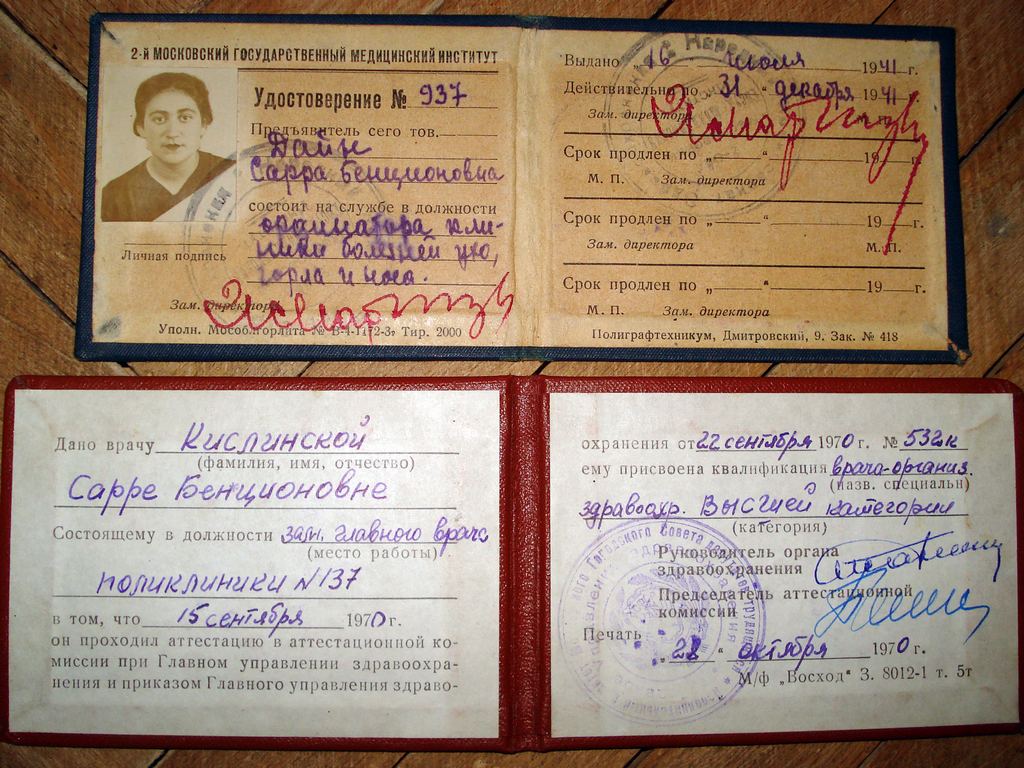 2-й МОСКОВСКИЙ ГОСУДАРСТВЕННЫЙ МЕДИЦИНСКИЙ ИНСТИТУТ
Удостоверение № 937
Предъявитель сего тов.
Дайн
Сарра Бенционовна
состоит на службе в должности
ординатора кли-
ники болезней ухо,
горла и носа.
Личная подпись
Зам. директора
Уполн. Мособлгорлита № В-4-1172-3. Тир. 2000
Выдано „16" июля 1941 г.
Действительно по „31" декабря 1941 г.
Зам. директора
Срок продлен по „ " 19 г.
М. П. Зам. директора
Срок продлен по „ " 19 г.
Зам. директора М. П.
Срок продлен по „ " 19 г.
М. П. Зам. директора
Полиграфтехникум, Дмитровский, 9. Зак. № 418
Дано врачу Кислинской
(фамилия, имя, отчество)
Сарре Бенционовне
Состоящему в должности зам. главного врача
(место работы)
поликлиники N 137
в том, что 15 сентября 1970 г.
он проходил аттестацию в аттестационной ко-
миссии при Главном управлении здравоохра-
нения и приказом Главного управления здраво-
охранения от 22 сентября 1970 г. № 532к
ему присвоена квалификация врача-организ.
(назв. специальн)
здравоохр. Высшей категории
(категория)
Руководитель органа
здравоохранения
Председатель аттестационной
комиссии
Печать
„28" октября 1970 г.
М/ф „Восход" З. 8012-1 т. 5т